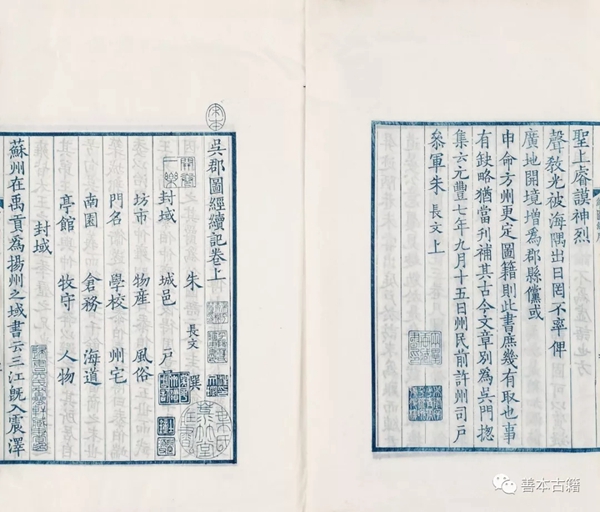 聖上睿謨神烈
聲敎光被海隅出日罔不率俾
廣地開境增爲郡縣儻或
申命方州更定圖籍則此書庶幾有取也事
有缺略猶當刊補其古今文章別爲吳門摠
集云元豐七年九月十五日州民前許州司戶
叅軍朱 長文 上
宋本
吳郡圖經續記卷上
朱 長文 撰
封域 城邑 戶
坊市 物産 風俗
門名 學校 州宅
南園 倉務 海道
亭館 牧守 人物
封域
蘇州在禹貢爲揚州之域書云三江旣入震澤
善本古籍